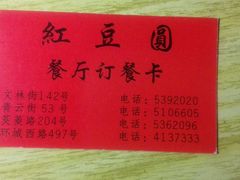 紅豆圓
餐厅订餐卡
文林街142号 电话：5392020
青云街53号 电话：5106605
芙蓉路204号 电话：5362096
环城西路497号 电话：4137333